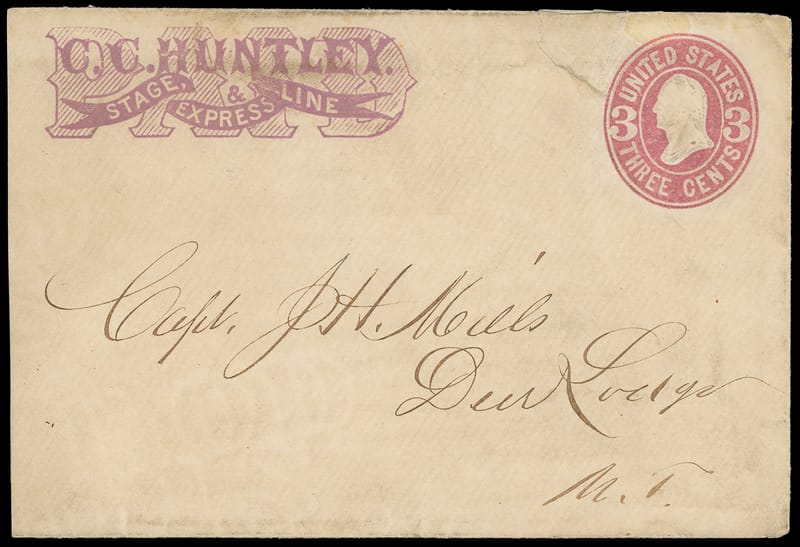 C.C. HUNTLEY.
PAID
STAGE, & EXPRESS LINE
UNITED STATES
3 3
THREE CENTS
Capt. J H. Mills
Deer Lodge
M. T.